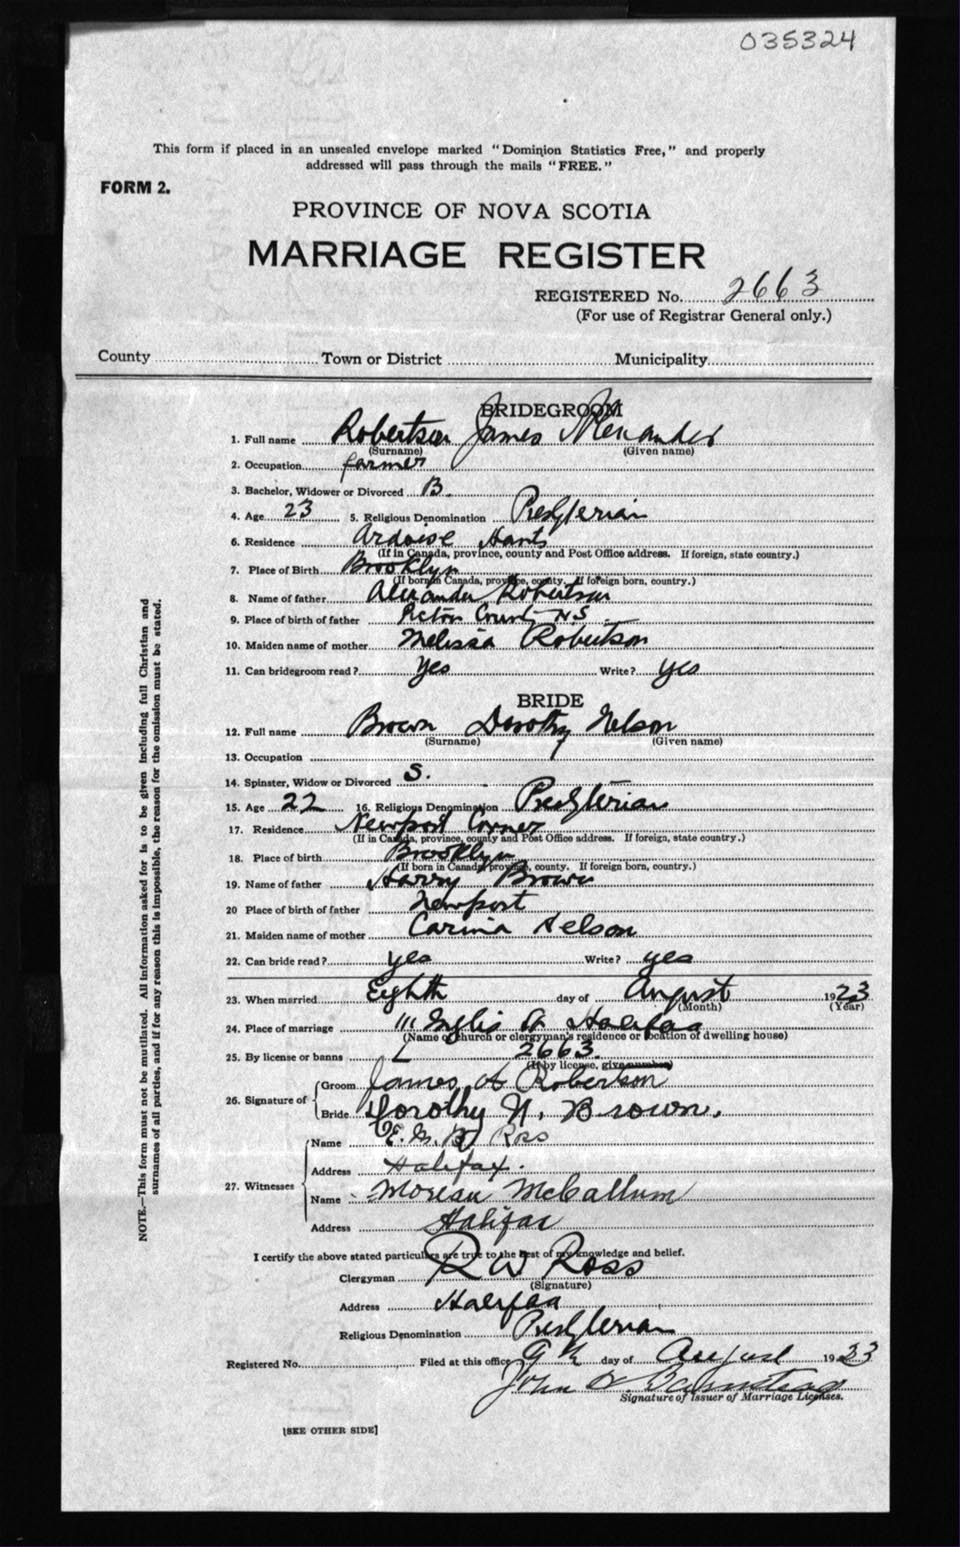 035324
This form if placed in an unsealed envelope marked "Dominion Statistics Free," and properly
addressed will pass through the mails "FREE."
FORM 2.
PROVINCE OF NOVA SCOTIA
MARRIAGE REGISTER
REGISTERED No. 2663
(For use of Registrar General only.)
County Town or District Municipality
BRIDEGROOM
1. Full name Robertson James Alexander
(Surname) (Given name)
2. Occupation farmer
3. Bachelor, Widower or Divorced B.
4. Age 23 5. Religious Denomination Presbyterian
6. Residence Ardoise Hants
(If in Canada, province, county and Post Office address. If foreign, state country.)
7. Place of Birth Brooklyn
(If born in Canada, province, county. If foreign born, country.)
8. Name of father Alexander Robertson
9. Place of birth of father Picton County NS
10. Maiden name of mother Melissa Robertson
11. Can bridegroom read? Yes Write? yes
BRIDE
12. Full name Brown Dorothy Nelson
(Surname) (Given name)
13. Occupation
14. Spinster, Widow or Divorced S.
15. Age 22 16. Religious Denomination Presbyterian
17. Residence Newport Corner
(If in Canada, province, county and Post Office address. If foreign, state country.)
18. Place of birth Brooklyn
(If born in Canada, province, county. If foreign born, country.)
19. Name of father Harry Brown
20 Place of birth of father Newport
21. Maiden name of mother Carina Nelson
22. Can bride read? yes Write? yes
23. When married Eighth day of August 1923
(Month) (Year)
24. Place of marriage 111 Inglis St Halifax
(Name of church or clergyman's residence or location of dwelling house)
25. By license or banns L 2663.
(If by license, give number)
26. Signature of Groom James A Robertson
Bride Dorothy N. Brown.
27. Witnesses Name Ross
Address Halifax.
Name Moreau McCallum
Address Halifax
I certify the above stated particulars are true to the best of my knowledge and belief.
Clergyman R W Ross
(Signature)
Address Halifax
Religious Denomination Presbyterian
Registered No. Filed at this office 9th day of August 1923
John
Signature of Issuer of Marriage Licenses.
[SEE OTHER SIDE]
NOTE.—This form must not be mutilated. All information asked for is to be given including full Christian and
surnames of all parties, and if for any reason this is impossible, the reason for the omission must be stated.